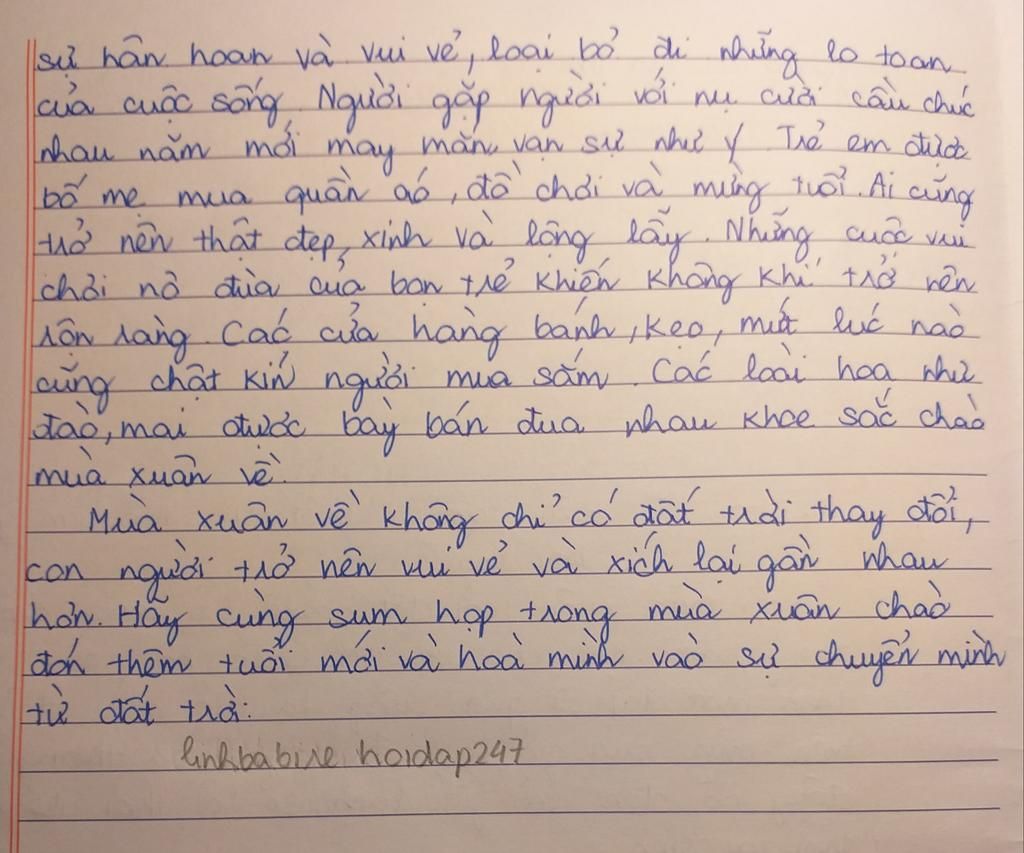 sự hân hoan và vui vẻ, loại bỏ đi những lo toan
của cuộc sống. Người gặp người với nụ cười cầu chúc
nhau năm mới may mắn, vạn sự như ý. Trẻ em được
bố mẹ mua quần áo, đồ chơi và mừng tuổi. Ai cũng
trở nên thật đẹp, xinh và lộng lẫy. Những cuộc vui
chơi nô đùa của bọn trẻ khiến không khí trở nên
rộn ràng. Các cửa hàng bánh, kẹo, mứt lúc nào
cũng chật kín người mua sắm. Các loài hoa như
đào, mai được bày bán đua nhau khoe sắc chào
mùa xuân về.
Mùa xuân về không chỉ có đất trời thay đổi,
con người trở nên vui vẻ và xích lại gần nhau
hơn. Hãy cùng sum họp trong mùa xuân chào
đón thêm tuổi mới và hoà mình vào sự chuyển mình
từ đất trời.
linhbabire hoidap247